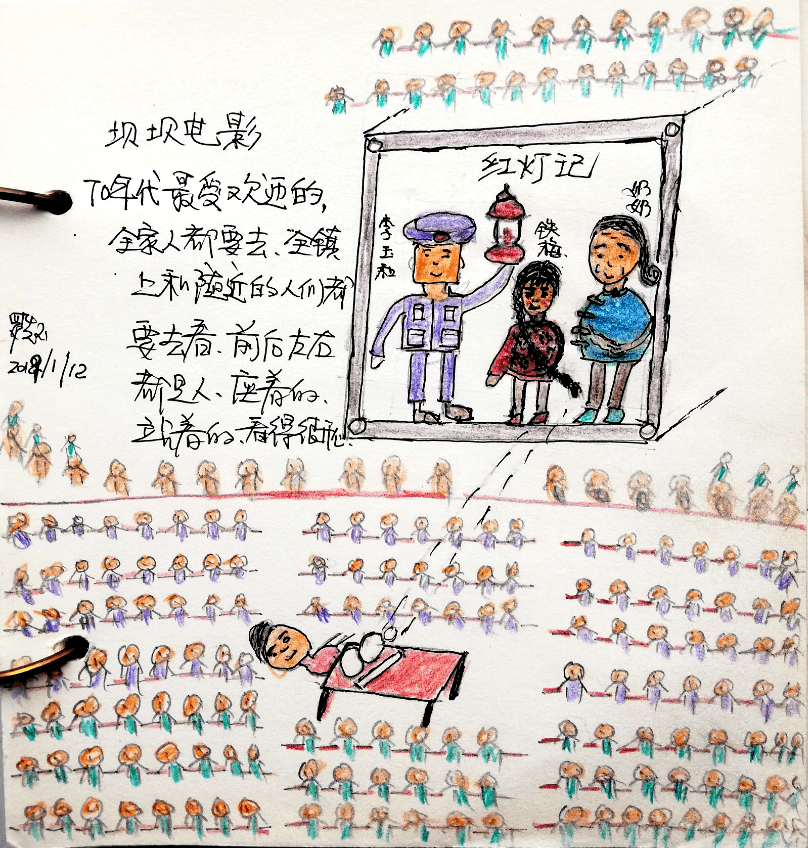 坝坝电影
70年代最受欢迎的,
全家人都要去、全镇
上和随近的人们都
要去看、前后左右
都是人、座着的、
站着的、看得很
2018/1/12
红灯记
李玉和
铁梅
奶奶